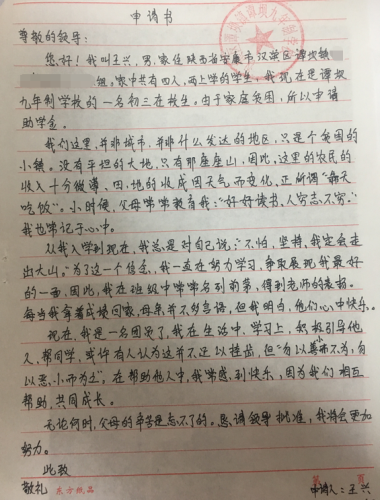 申请书
尊敬的领导:
您好!我叫王兴,男,家住陕西省安康市汉滨区谭坝镇
组,家中共有四人,两上学的学生,我现在是谭坝
九年制学校的一名初三在校生。由于家庭贫困,所以申请
助学金。
我们这里,并非城市,并非什么发达的地区,只是个贫困的
小镇。没有平坦的大地,只有那座座山,因此,这里的农民的
收入十分微薄、田、地的收成因天气而变化,正所谓“靠天
吃饭”。小时候,父母常常教育我:“好好读书,人穷志不穷。”
我也牢记于心中。
从我入学到现在,我总是对自己说:“不怕,坚持,我定会走
出大山。”为了这一个信念,我一直在努力学习,争取展现我最好
的一面,因此,我在班级中常常名列前茅,得到老师的表扬。
每当我拿着成绩回家,母亲并不多言语,但我明白,他们心中快乐。
现在,我是一名团员了,我在生活中,学习上,积极引导他
人,帮同学,或许有人认为这并不足以挂齿,但“勿以善小而不为,勿
以恶小而为之”。在帮助他人中,我常感到快乐,因为我们相互
帮助,共同成长。
无论何时,父母的辛苦是忘不了的。恳请领导批准,我将会更加
努力。
此致
敬礼
东方纸品
申请人:王兴